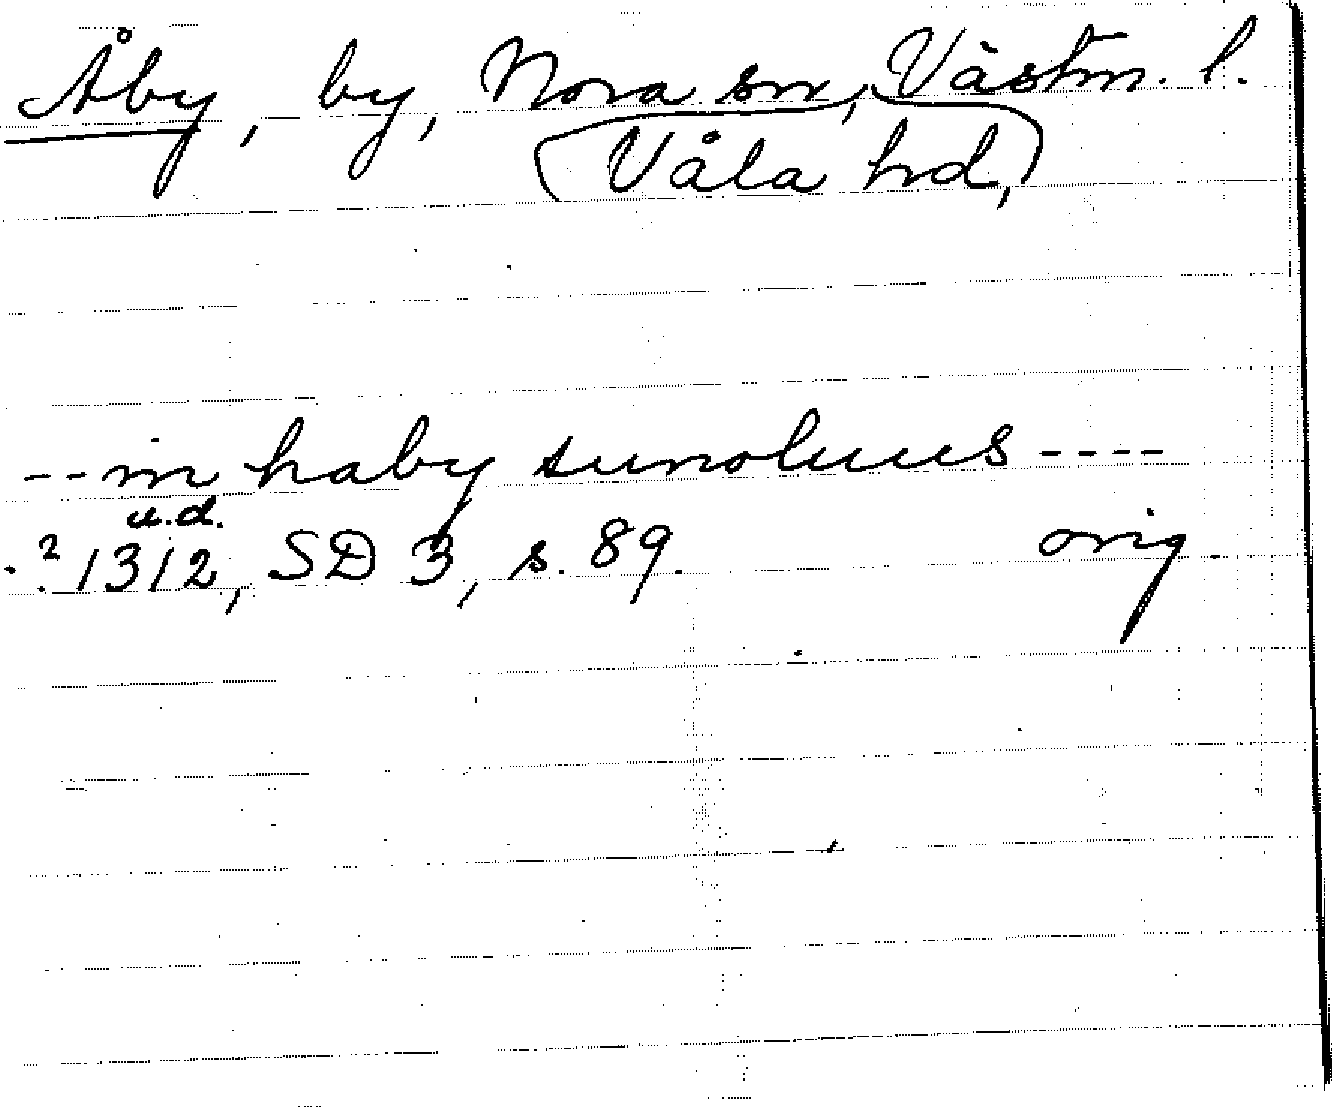 Åby, by, Nora sn, Västm. l.
(Våla hd,)
-- in haby sunoluus ----
u.d.
? 1312, SD 3, s. 89. orig.